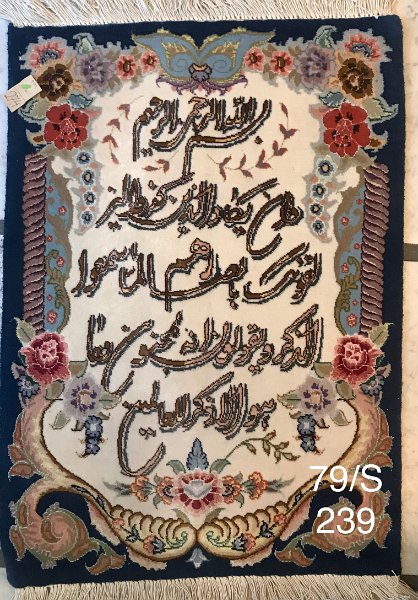 بسم الله الرحمن الرحیم
وان یکاد الذین کفروا لیز
لقونک بابصارهم لما سمعوا
الذکر و یقولون انه لمجنون وما
هو الا ذکر للعالمین
79/S
239